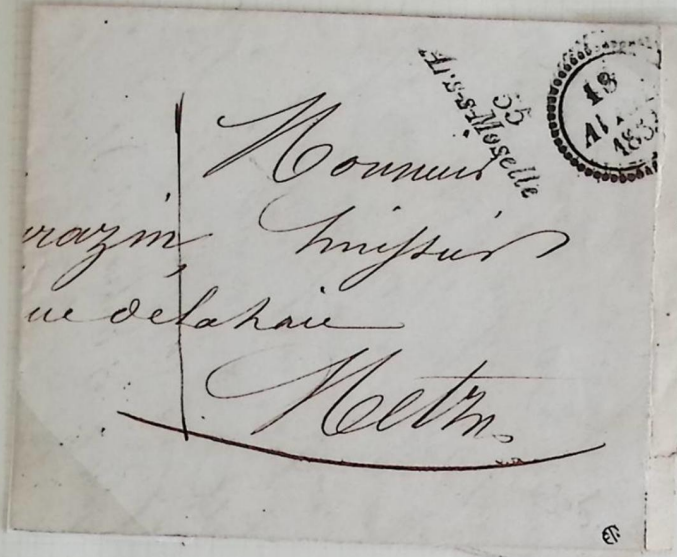 55
Ars-s-Moselle
18
183
Monsieur
razin, huissier
ue de la haie
Metz